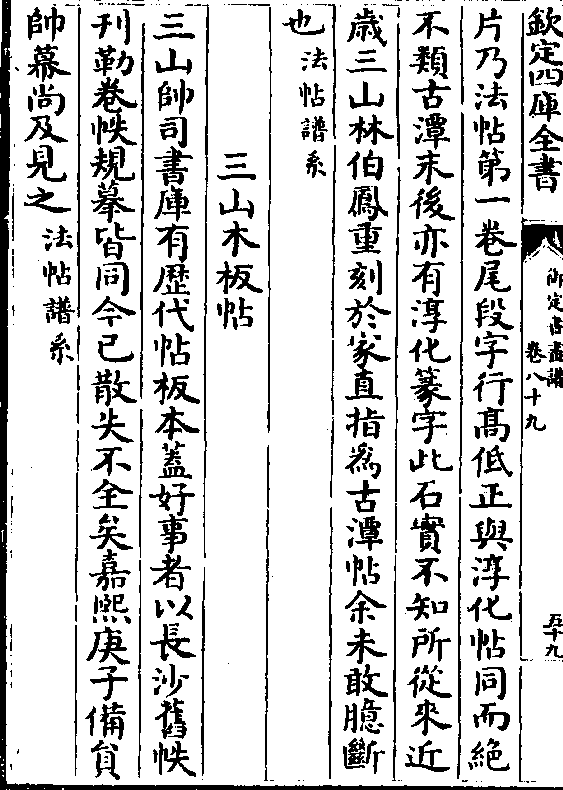 欽定四庫全書
御定書畫譜
卷八十九
五十九
片乃法帖第一卷尾段字行髙低正與淳化帖同而絶
不類古潭末後亦有淳化篆字此石實不知所從來近
歳三山林伯鳳重刻於家直指爲古潭帖余未敢臆斷
也法帖譜系
三山木板帖
三山帥司書庫有歴代帖板本蓋好事者以長沙舊帙
刋勒卷帙規摹皆同今已散失不全矣嘉熙庚子備貟
帥幕尚及見之法帖譜系